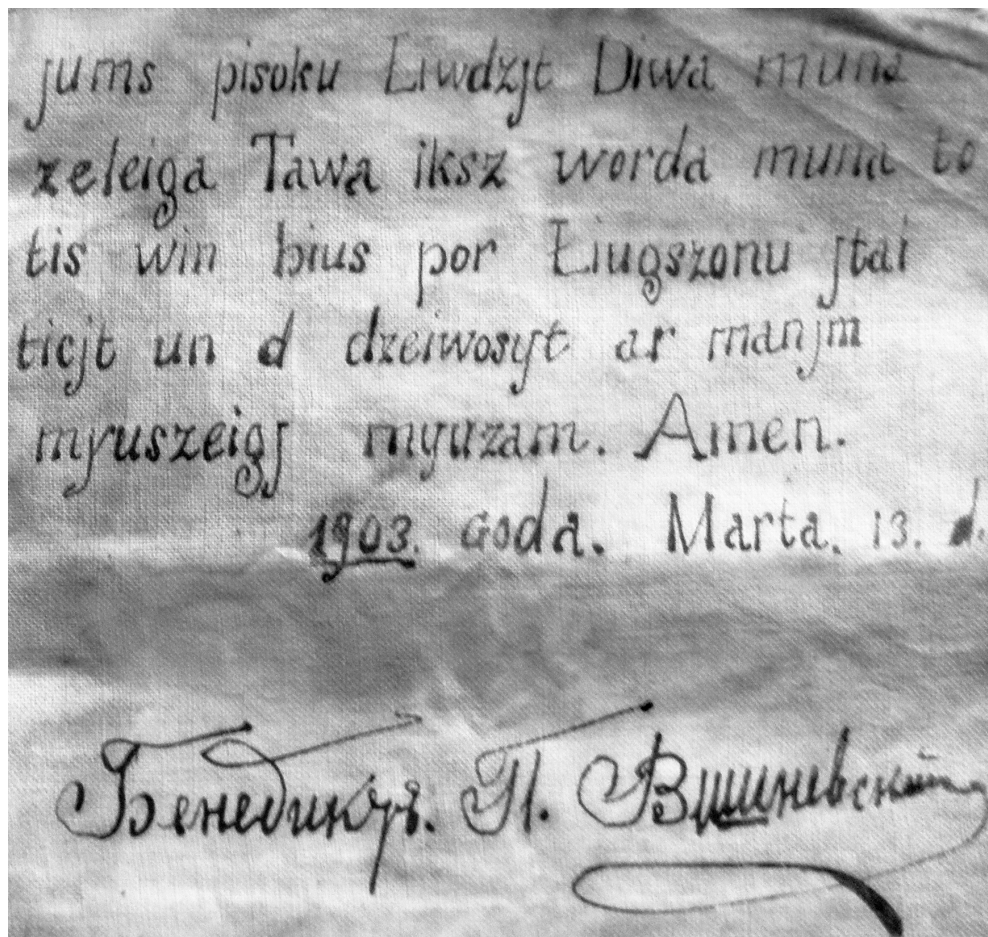 jums pisoku Łiwdzjt Diwa muna
zeleiga Tawa iksz worda muna to
tis win bius por Łiugszonu jtai
ticjt un d dzeiwosyt ar manjm
myuszeigj myuzam. Amen.
1903. Goda. Marta. 13. d.
Бенедиктъ. П. Вишневскій